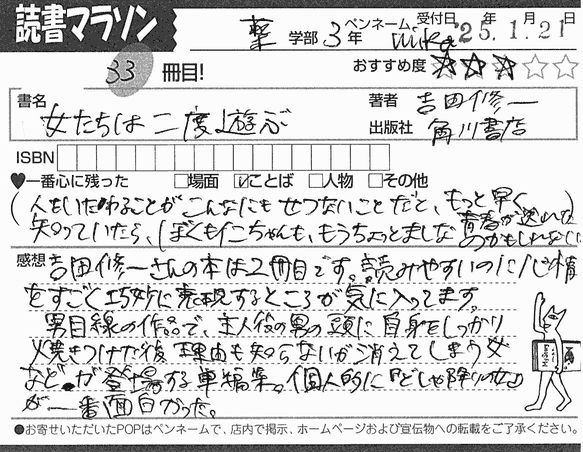 読書マラソン
薬 学部 3年 ペンネーム mika 受付日 '25年 1月 21日
33 冊目! おすすめ度 ★★★☆☆
書名 女たちは二度遊ぶ 著者 吉田修一
出版社 角川書店
ISBN
♥一番心に残った □場面 ☑ことば □人物 □その他
(人をいたわることがこんなにもせつないことだと、もっと早く
知っていたら、ぼくもイニちゃんも、もうちょっとましな青春が送れた
のかもしれない)
感想 吉田修一さんの本は2冊目です。読みやすいのに心情
をすごく巧妙に表現するところが気に入ってます。
男目線の作品で、主人公の男の頭に自身をしっかり
焼きつけた後理由も知らないが消えてしまう女
など が登場する短編集。個人的に『どしゃ降りの女』
が一番面白かった。
●お寄せいただいたPOPはペンネームで、店内で掲示、ホームページおよび宣伝物への転載をご了承ください。